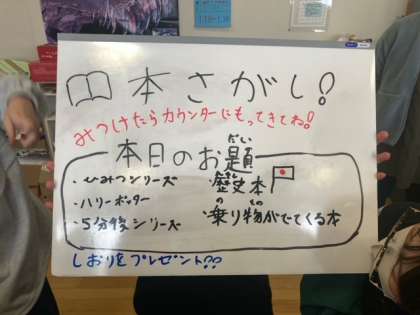 本さがし!
みつけたらカウンターにもってきてね!
本日のお題
だい
・ひみつシリーズ
・ハリーポッター
・5分後シリーズ
・歴史本
れきし
・乗り物がでてくる本
の もの
しおりをプレゼント!!